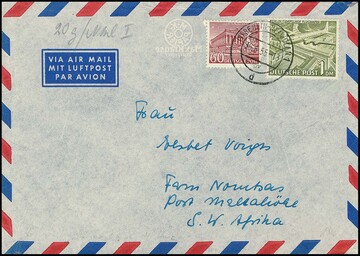 20g
VIA AIR MAIL
MIT LUFTPOST
PAR AVION
60
DEUTSCHE POST
1 DM
d
Frau
Voigts
Farm Nomtsas
Post Maltahöhe
S. W. Afrika